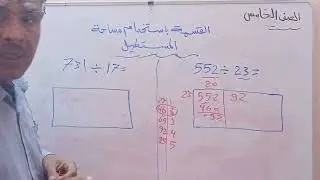 الصف الخامس
القسمة باستخدام مساحة
المستطيل
731 ÷ 17 =
552 ÷ 23 =
20
23 552 92
460
92